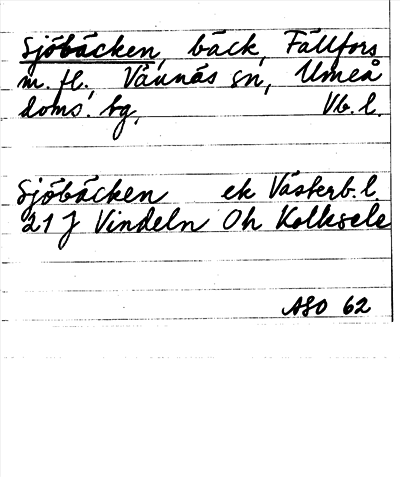 Sjöbäcken, bäck, Fällfors
m. fl., Vännäs sn, Umeå
doms. bg, Vb. l.
Sjöbäcken ek Västerb. l.
21 J Vindeln Oh Kolksele
ASO 62